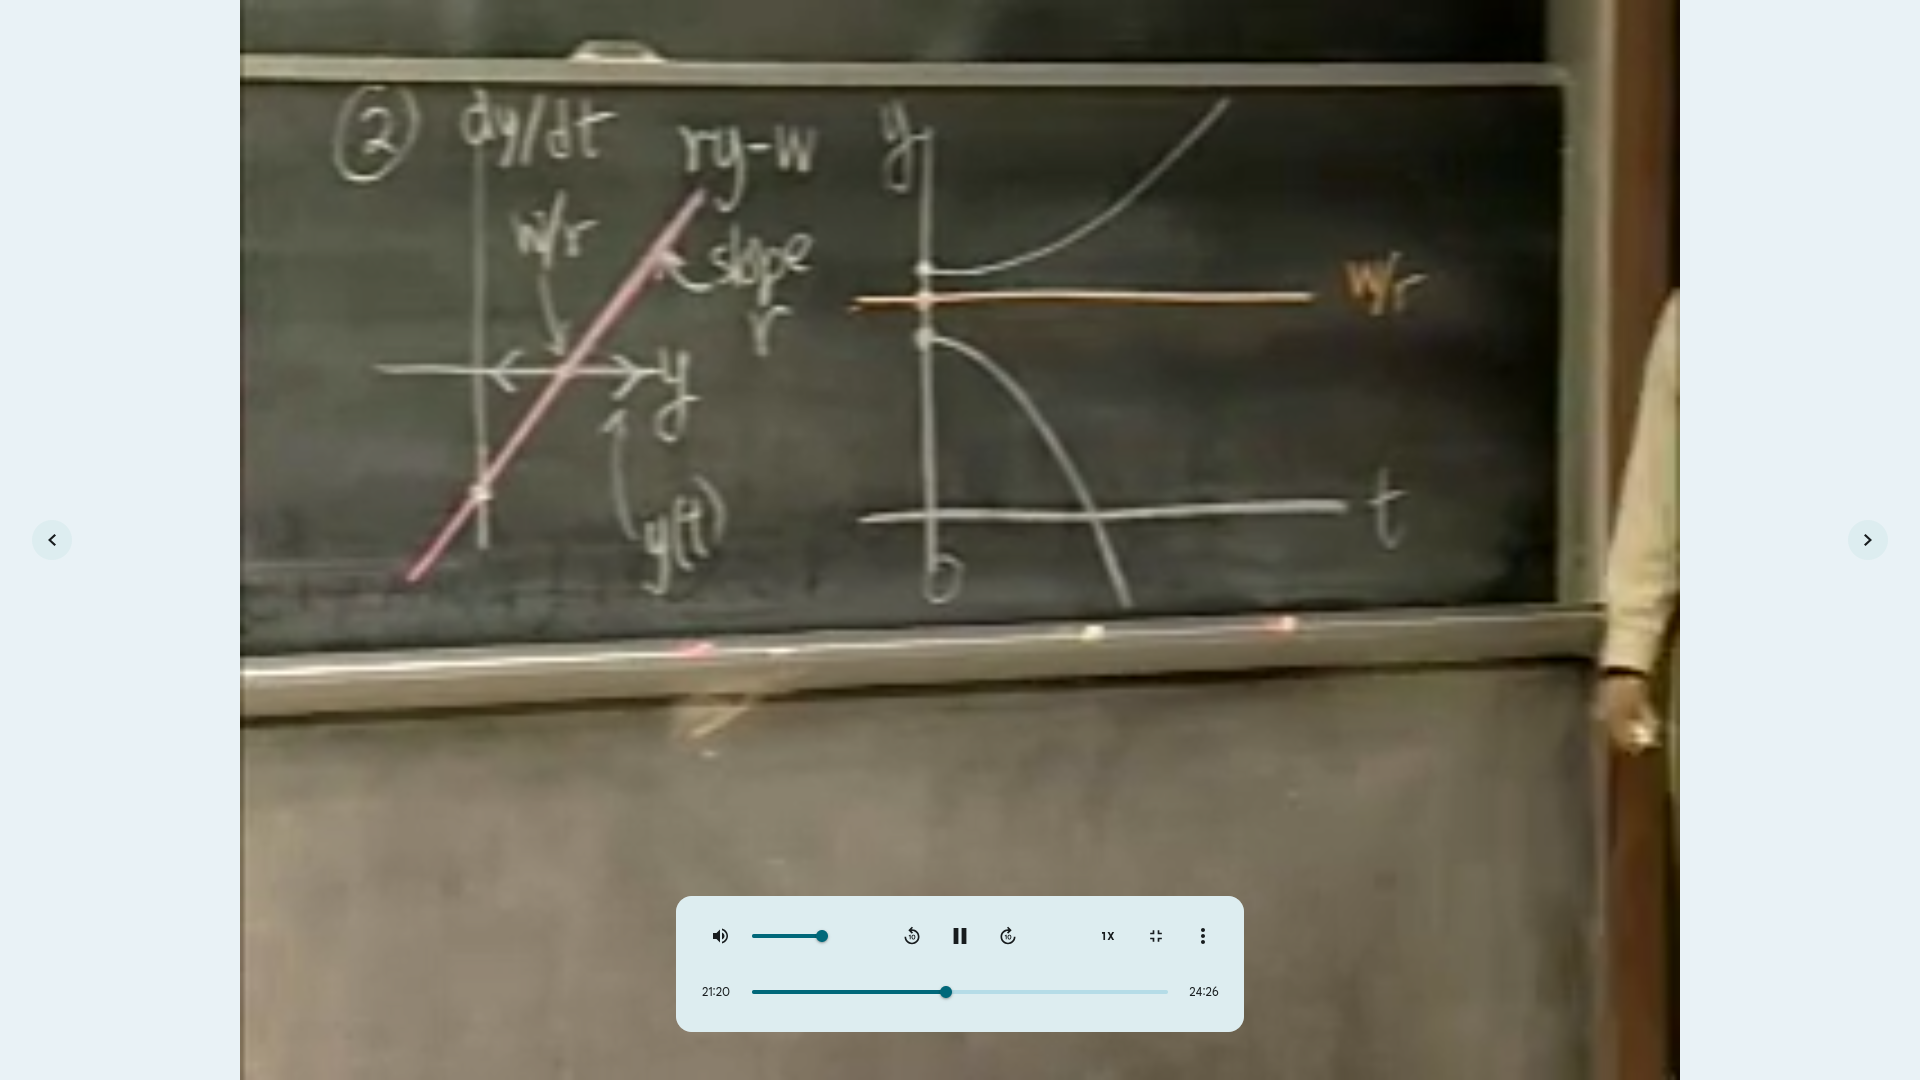 ② dy/dt
ry-w
w/r
slope
r
y
y(t)
y
w/r
t
0
1X
10
10
21:20
24:26